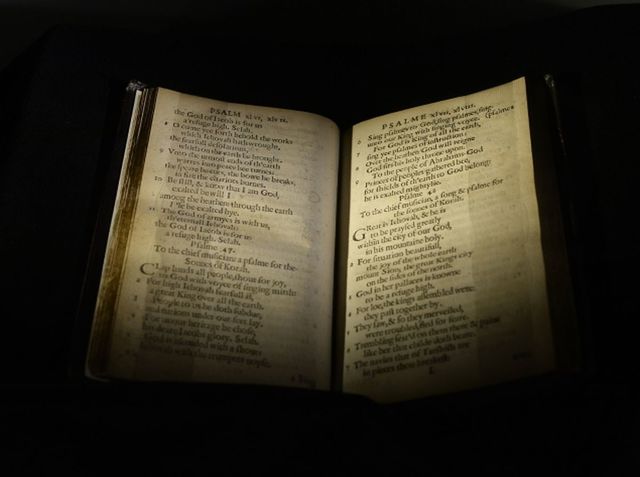 PSALM xlvi, xlvii.
the God of Iacob is for us
a refuge high. Selah.
8 O come yee forth behold the works
which Iehovah hath wrought,
the fearfull desolations,
which on the earth he brought.
9 Unto the utmost ends of th'earth
warres into peace hee turnes:
the speare he cuts, the bowe he breaks,
in fire the chariots burnes.
10 Be still, & know that I am God,
exalted be will I
among the heathen: through the earth
I'le be exalted hye.
11 The God of armyes is with us,
th'eternall Iehovah:
the God of Iacob is for us
a refuge high. Selah.
Psalme 47.
To the chief musician: a psalme for the
Sonnes of Korah.
CLap hands all people, shout for joy,
to God with voyce of singing mirth:
2 For high Iehovah fearfull is,
a great King over all the earth.
3 People to us he doth subdue,
and nations under our feet lay.
4 For us our heritage he chose,
his deare Iacobs glory. Selah.
5 God is ascended with a shout:
Iehovah with the trumpets noyse.
PSALME xlvii, xlviii.
6 Sing psalmes to God, sing psalmes, sing
unto our King with singing voyce. (psalmes
7 For God is King of all the earth,
sing yee psalmes of instruction:
8 Over the heathen God will reigne
God sits his holy throne upon.
9 To the people of Abrahams God
Princes of peoples gathered bee,
for shields of th'earth to God belong:
he is exalted mightylie.
Psalme 48
To the chief musician, a song & psalme for
the sonnes of Korah.
GReat is Iehovah, & he is
to be praysed greatly
within the city of our God,
in his mountaine holy.
2 For situation beautifull,
the joy of the whole earth
mount Sion; the great Kings city
on the sides of the north.
3 God in her pallaces is knowne
to be a refuge high.
4 For loe, the kings assembled were:
they past together by.
5 They saw, & so they merveiled,
were troubled, fled for feare.
6 Trembling seiz'd on them there & paine
like her that childe doth beare.
7 The navies that of Tarshish are
in pieces thou